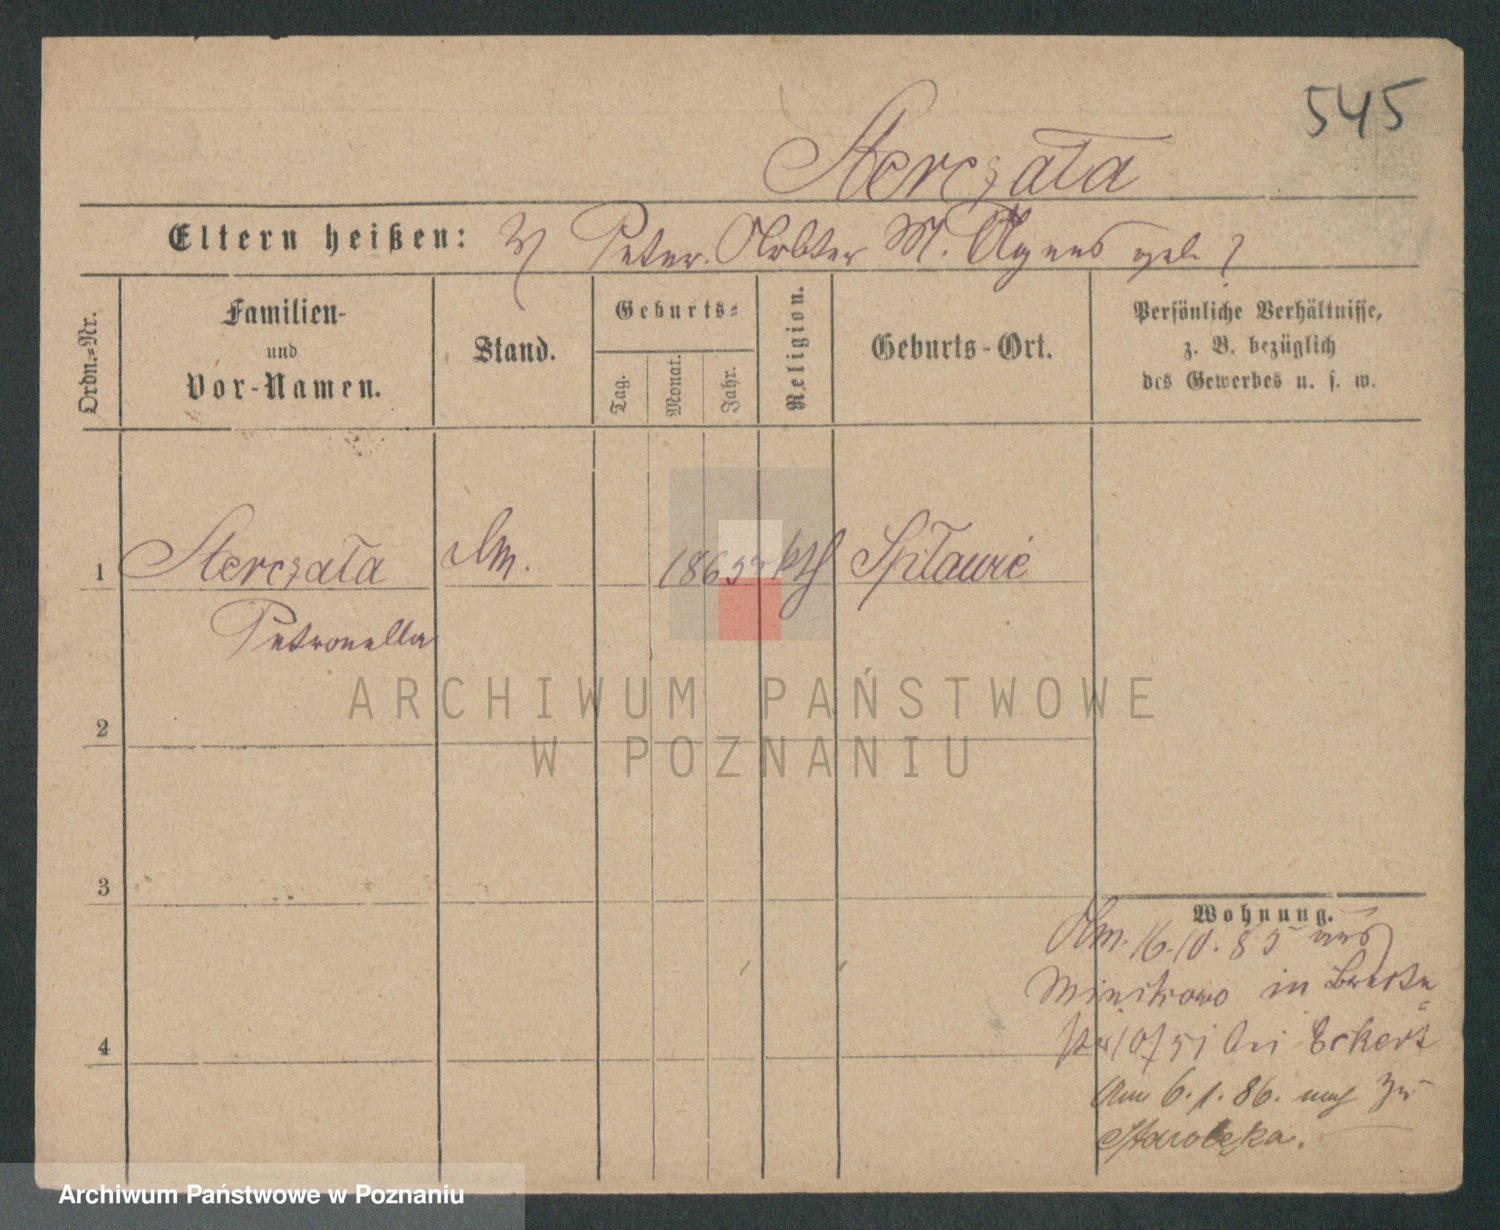 545
Sterczała
Eltern heißen: V Peter. Arbter M. Agnes geb. ?
Ordn.-Nr.
Familien-
und
Vor-Namen.
Stand.
Geburts-
Tag.
Monat.
Jahr.
Religion.
Geburts-Ort.
Persönliche Verhältnisse,
z. B. bezüglich
des Gewerbes u. s. w.
1 Sterczała 1865 kth Spławie
Petronella
ARCHIWUM PAŃSTWOWE
W POZNANIU
2
3
4
Wohnung.
Am. 16.10.85 aus
Minikowo in
bei Eckert
Am 6.1.86. nach
Starolęka.
Archiwum Państwowe w Poznaniu